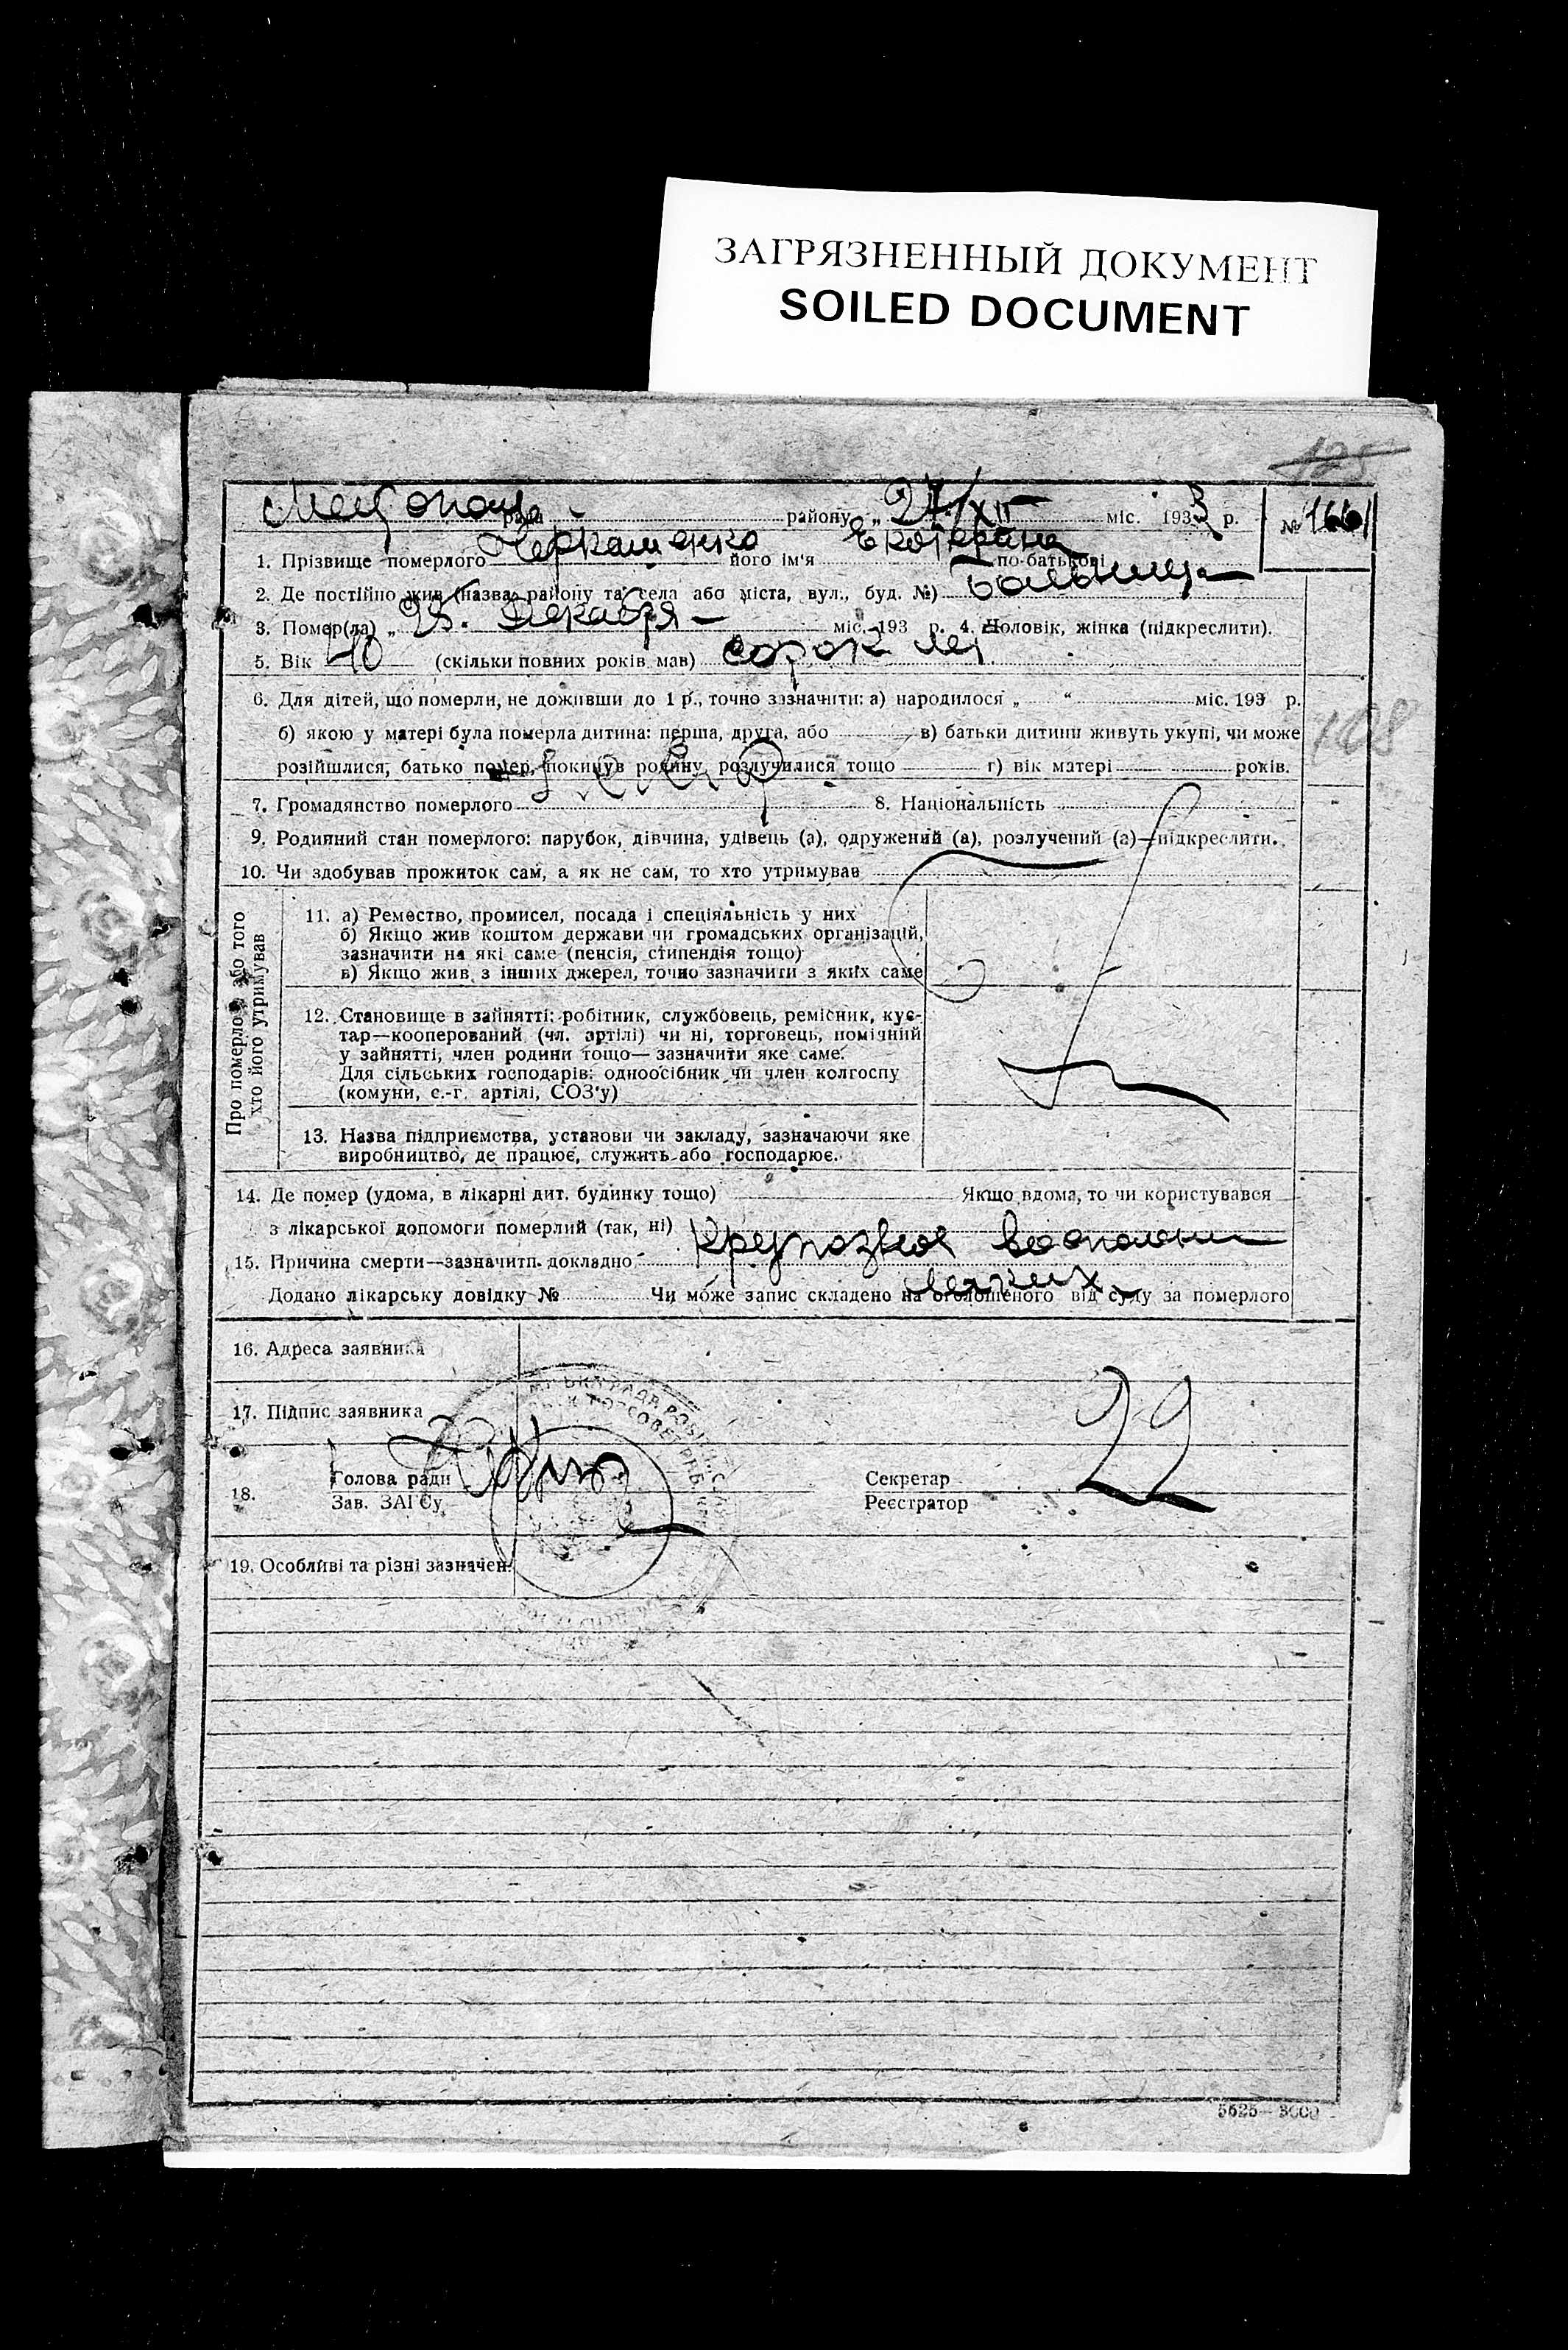 ЗАГРЯЗНЕННЫЙ ДОКУМЕНТ
SOILED DOCUMENT
125
рада району „ 27/XII міс. 1933 р. № 1661
1. Прізвище померлого Черкашенко його ім'я Екатерина по-батькові
2. Де постійно жив (назва району та села або міста, вул., буд. №) Больница
3. Помер(ла) „ 25. Декабря міс. 193 р. 4. Чоловік, жінка (підкреслити).
5. Вік 40 (скільки повних років мав) сорок лет
6. Для дітей, що померли, не доживши до 1 р., точно зазначити: а) народилося „ “ міс. 193 р.
б) якою у матері була померла дитина: перша, друга, або в) батьки дитини живуть укупі, чи може
108
розійшлися, батько помер, покинув родину, розлучилися тощо г) вік матері років.
7. Громадянство померлого 8. Національність
9. Родинний стан померлого: парубок, дівчина, удівець (а), одружений (а), розлучений (а)—підкреслити.
10. Чи здобував прожиток сам, а як не сам, то хто утримував
Про померлого або того
хто його утримував
11. а) Ремество, промисел, посада і спеціяльність у них
б) Якщо жив коштом держави чи громадських організацій,
зазначити на які саме (пенсія, стипендія тощо)
в) Якщо жив з інших джерел, точно зазначити з яких саме
12. Становище в зайнятті: робітник, службовець, ремісник, кус-
тар—кооперований (чл. артілі) чи ні, торговець, помічний
у зайнятті, член родини тощо— зазначити яке саме.
Для сільських господарів: одноосібник чи член колгоспу
(комуни, с.-г. артілі, СОЗ'у)
13. Назва підприємства, установи чи закладу, зазначаючи яке
виробництво, де працює, служить або господарює.
14. Де помер (удома, в лікарні дит. будинку тощо) Якщо вдома, то чи користувався
з лікарської допомоги померлий (так, ні)
15. Причина смерти—зазначити докладно Крупозное воспаление
легких
Додано лікарську довідку № Чи може запис складено на оголошеного від суду за померлого
16. Адреса заявника
17. Підпис заявника
18. Голова ради Секретар
Зав. ЗАГСу Реєстратор
19. Особливі та різні зазначен.
5625—3000